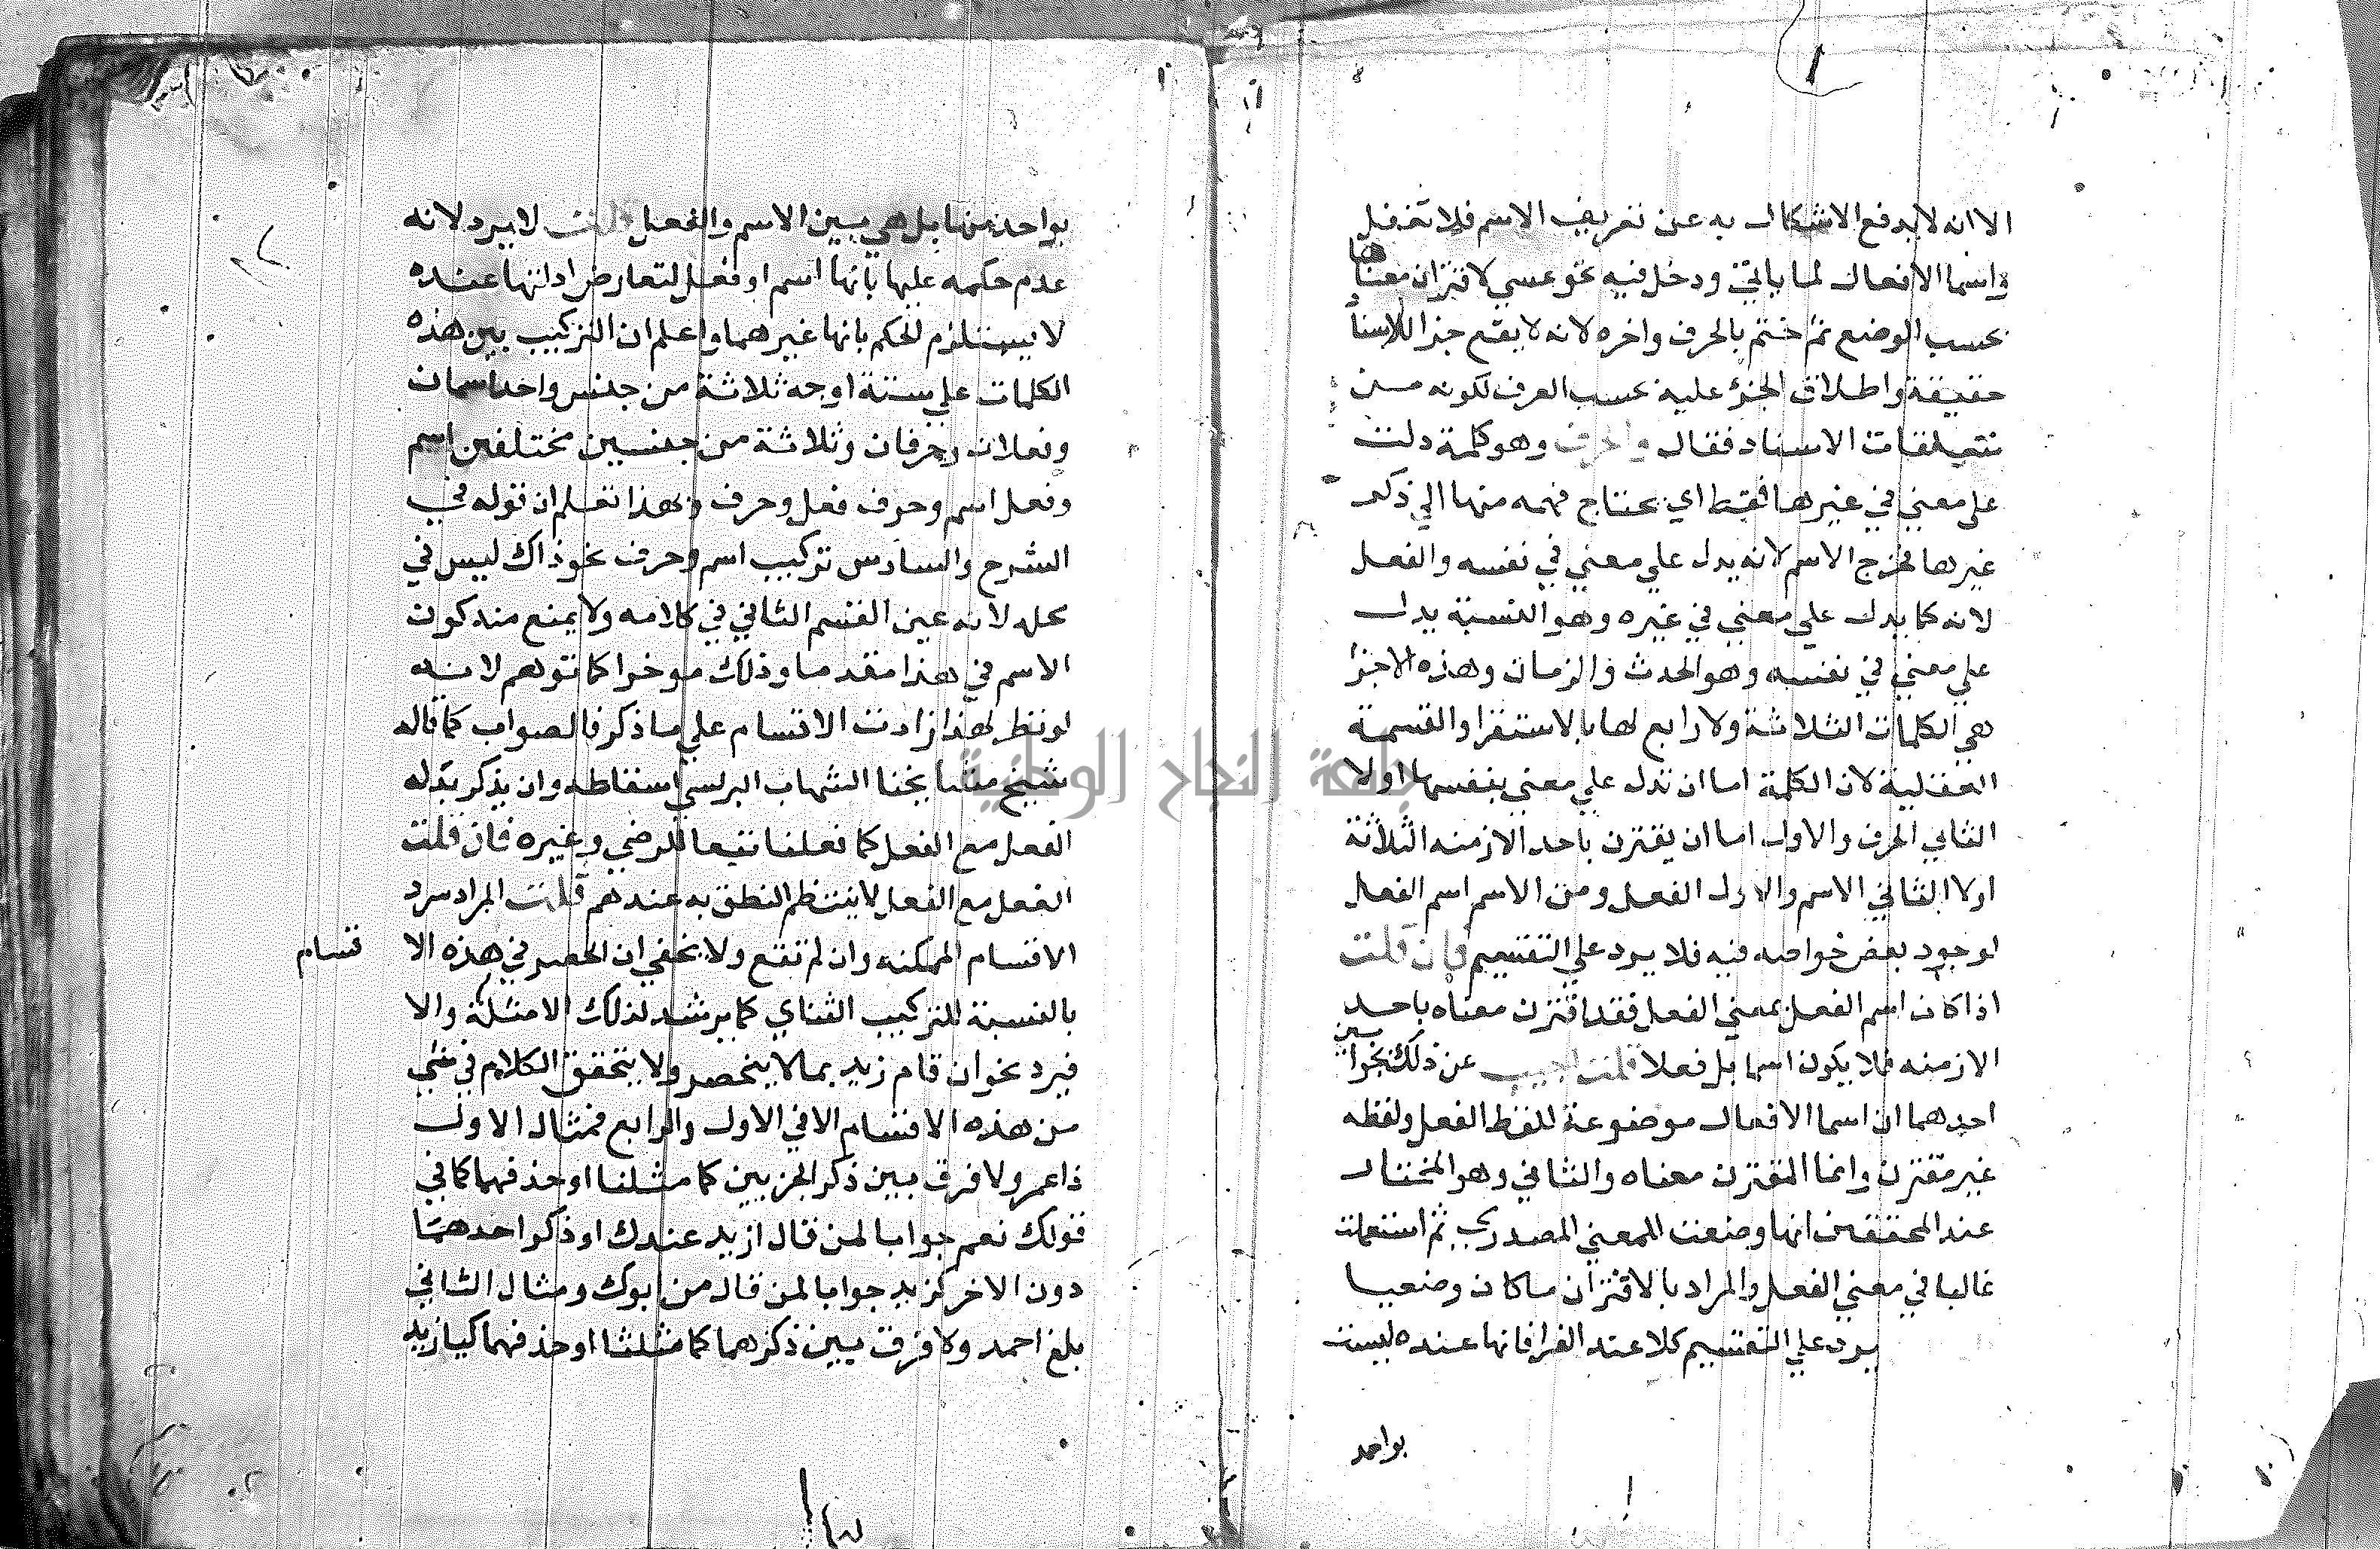 الا انه لا يدفع الاشكال به عن تعريف الاسم فلا تغفل
في اسما الافعال لما ياتي ودخل فيه نحو عسي لاقتران معناها
بحسب الوضع ثم ختم بالحرف واخره لانه لا يقع جزا للاسناد
حقيقة واطلاق الجزؤ عليه بحسب العرف لكونه من
متعلقات الاسناد فقال وحرف وهو كلمة دلت
علي معني في غيرها فقط اي يحتاج فهمه منها الي ذكر
غيرها فخرج الاسم لانه يدل علي معني في نفسه والفعل
لانه كما يدل علي معني في غيره وهو النسبة يدل
علي معني في نفسه وهو الحدث والزمان وهذه الاجزا
هي الكلمات الثلاثة ولا رابع لها بالاستقرا والقسمة
العقلية لان الكلمة اما ان تدل علي معني بنفسها اولا
الثاني الحرف والاول اما ان يقترن باحد الازمنه الثلاثة
اولا الثاني الاسم والاول الفعل ومن الاسم اسم الفعل
لوجود بعض خواصه فيه فلا يرد علي التقسيم فان قلت
اذا كان اسم الفعل بمعني الفعل فقد اقترن معناه باحد
الازمنه فلا يكون اسما بل فعلا قلت اجيب عن ذلك بجوابين
احدهما ان اسما الافعال موضوعة للفظ الفعل ولفظه
غير مقترن وانما المقترن معناه والثاني وهو المختار
عند المحققين انها وضعت للمعني المصدري ثم استعملت
غالبا في معني الفعل والمراد بالاقتران ما كان وضعيا
يرد علي التقسيم كلا عند الفرا فانها عنده ليست
بواحد
بواحد منها بل هي بين الاسم والفعل قلت لا يرد لانه
عدم حكمه عليها بانها اسم او فعل لتعارض ادلتها عنده
لا يستلزم الحكم بانها غيرهما واعلم ان التركيب بين هذه
الكلمات علي ستة اوجه ثلاثة من جنس واحد اسمان
وفعلان وحرفان وثلاثة من جنسين مختلفين اسم
وفعل اسم وحرف فعل وحرف وبهذا تعلم ان قوله في
الشرح والسادس تركيب اسم وحرف نحو ذاك ليس في
محله لانه عين القسم الثاني في كلامه ولا يمنع منه كون
الاسم في هذا مقدما وذلك موخرا كما توهم لانه
لو نظر لهذا زادت الاقسام علي ما ذكر فالصواب كما قاله
شيخ مشايخنا الشهاب البرلسي اسقاطه وان يذكر بدله
الفعل مع الفعل كما فعلنا تبعا للرضي وغيره فان قلت
الفعل مع الفعل لا ينتظم النطق به عندهم قلت المراد سرد
الاقسام الممكنه وان لم تقع ولا يخفي ان الحصر في هذه الا قسام
بالنسبة للتركيب الثناي كما يرشد لذلك الامثلة والا
فيرد نحو ان قام زيد بما لا ينحصر ولا يتحقق الكلام في شي
من هذه الاقسام الا في الاول والرابع فمثال الاول
ذا عمرو لا فرق بين ذكر الجزيين كما مثلنا او حذفهما كما في
قولك نعم جوابا لمن قال ازيد عندك او ذكر احدهما
دون الاخر كزيد جوابا لمن قال من ابوك ومثال الثاني
بلغ احمد ولا فرق بين ذكرهما كما مثلنا او حذفهما كيا زيد
جامعة النجاح الوطنية